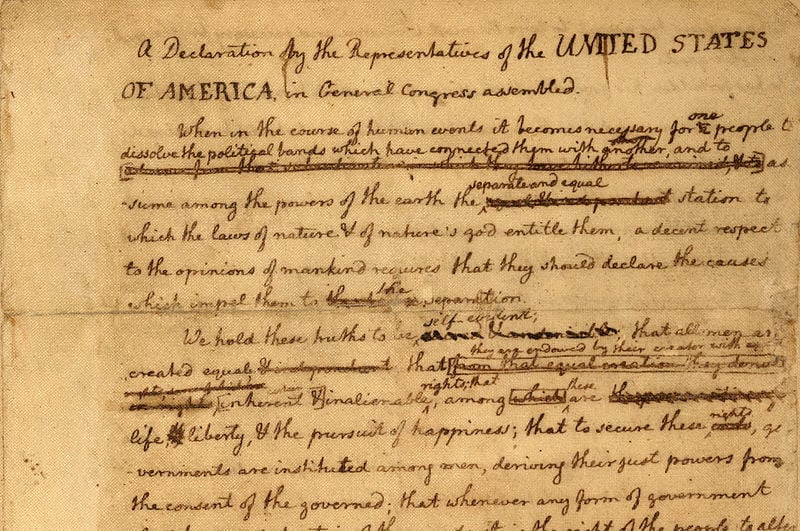 A Declaration by the Representatives of the UNITED STATES
OF AMERICA, in General Congress assembled.
When in the course of human events it becomes necessary for one people to
dissolve the political bands which have connected them with another, and to
as
separate and equal
-sume among the powers of the earth the station to
which the laws of nature & of nature's god entitle them, a decent respect
to the opinions of mankind requires that they should declare the causes
which impel them to the separation.
self-evident;
We hold these truths to be that all men are
they are endowed by their creator with
created equal & independant that from that equal creation they derive
rights; that these
in rights inherent & inalienable, among which are
rights
life liberty, & the pursuit of happiness; that to secure these ends, go-
-vernments are instituted among men, deriving their just powers from
the consent of the governed; that whenever any form of government
it is the right of the people to alter